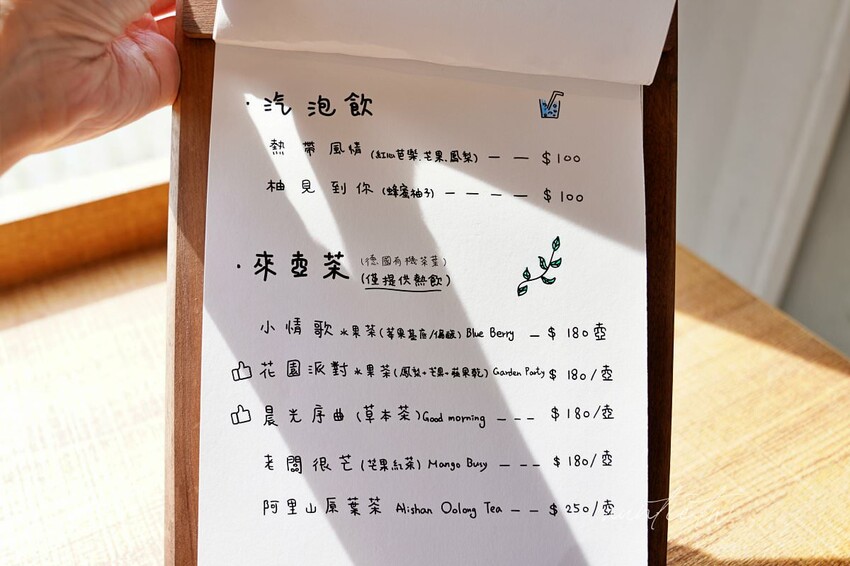 · 汽泡飲
熱帶風情 (紅心芭樂.芒果.鳳梨) — — $100
柚見到你 (蜂蜜柚子) — — — — $100
· 來壺茶 (德國有機茶葉)
(僅提供熱飲)
小情歌 水果茶(莓果基底/偏酸) Blue Berry — $180壺
花園派對 水果茶(鳳梨+芒果+蘋果乾) Garden Party $180/壺
晨光序曲 (草本茶) Good morning — — — $180/壺
老闆很芒 (芒果紅茶) Mango Busy — — — $180/壺
阿里山原葉茶 Alishan Oolong Tea — — $250/壺